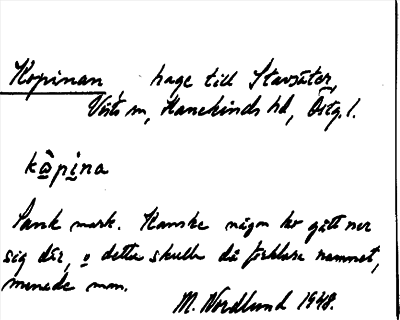 Kopinan, hage till Stavsäter,
Vists sn, Hanekinds hd, Östg. l.
kåpina
Sank mark. Kanske någon ko gått ner
sig där, o detta skulle då förklara namnet,
menade mm.
M. Nordlund 1948.